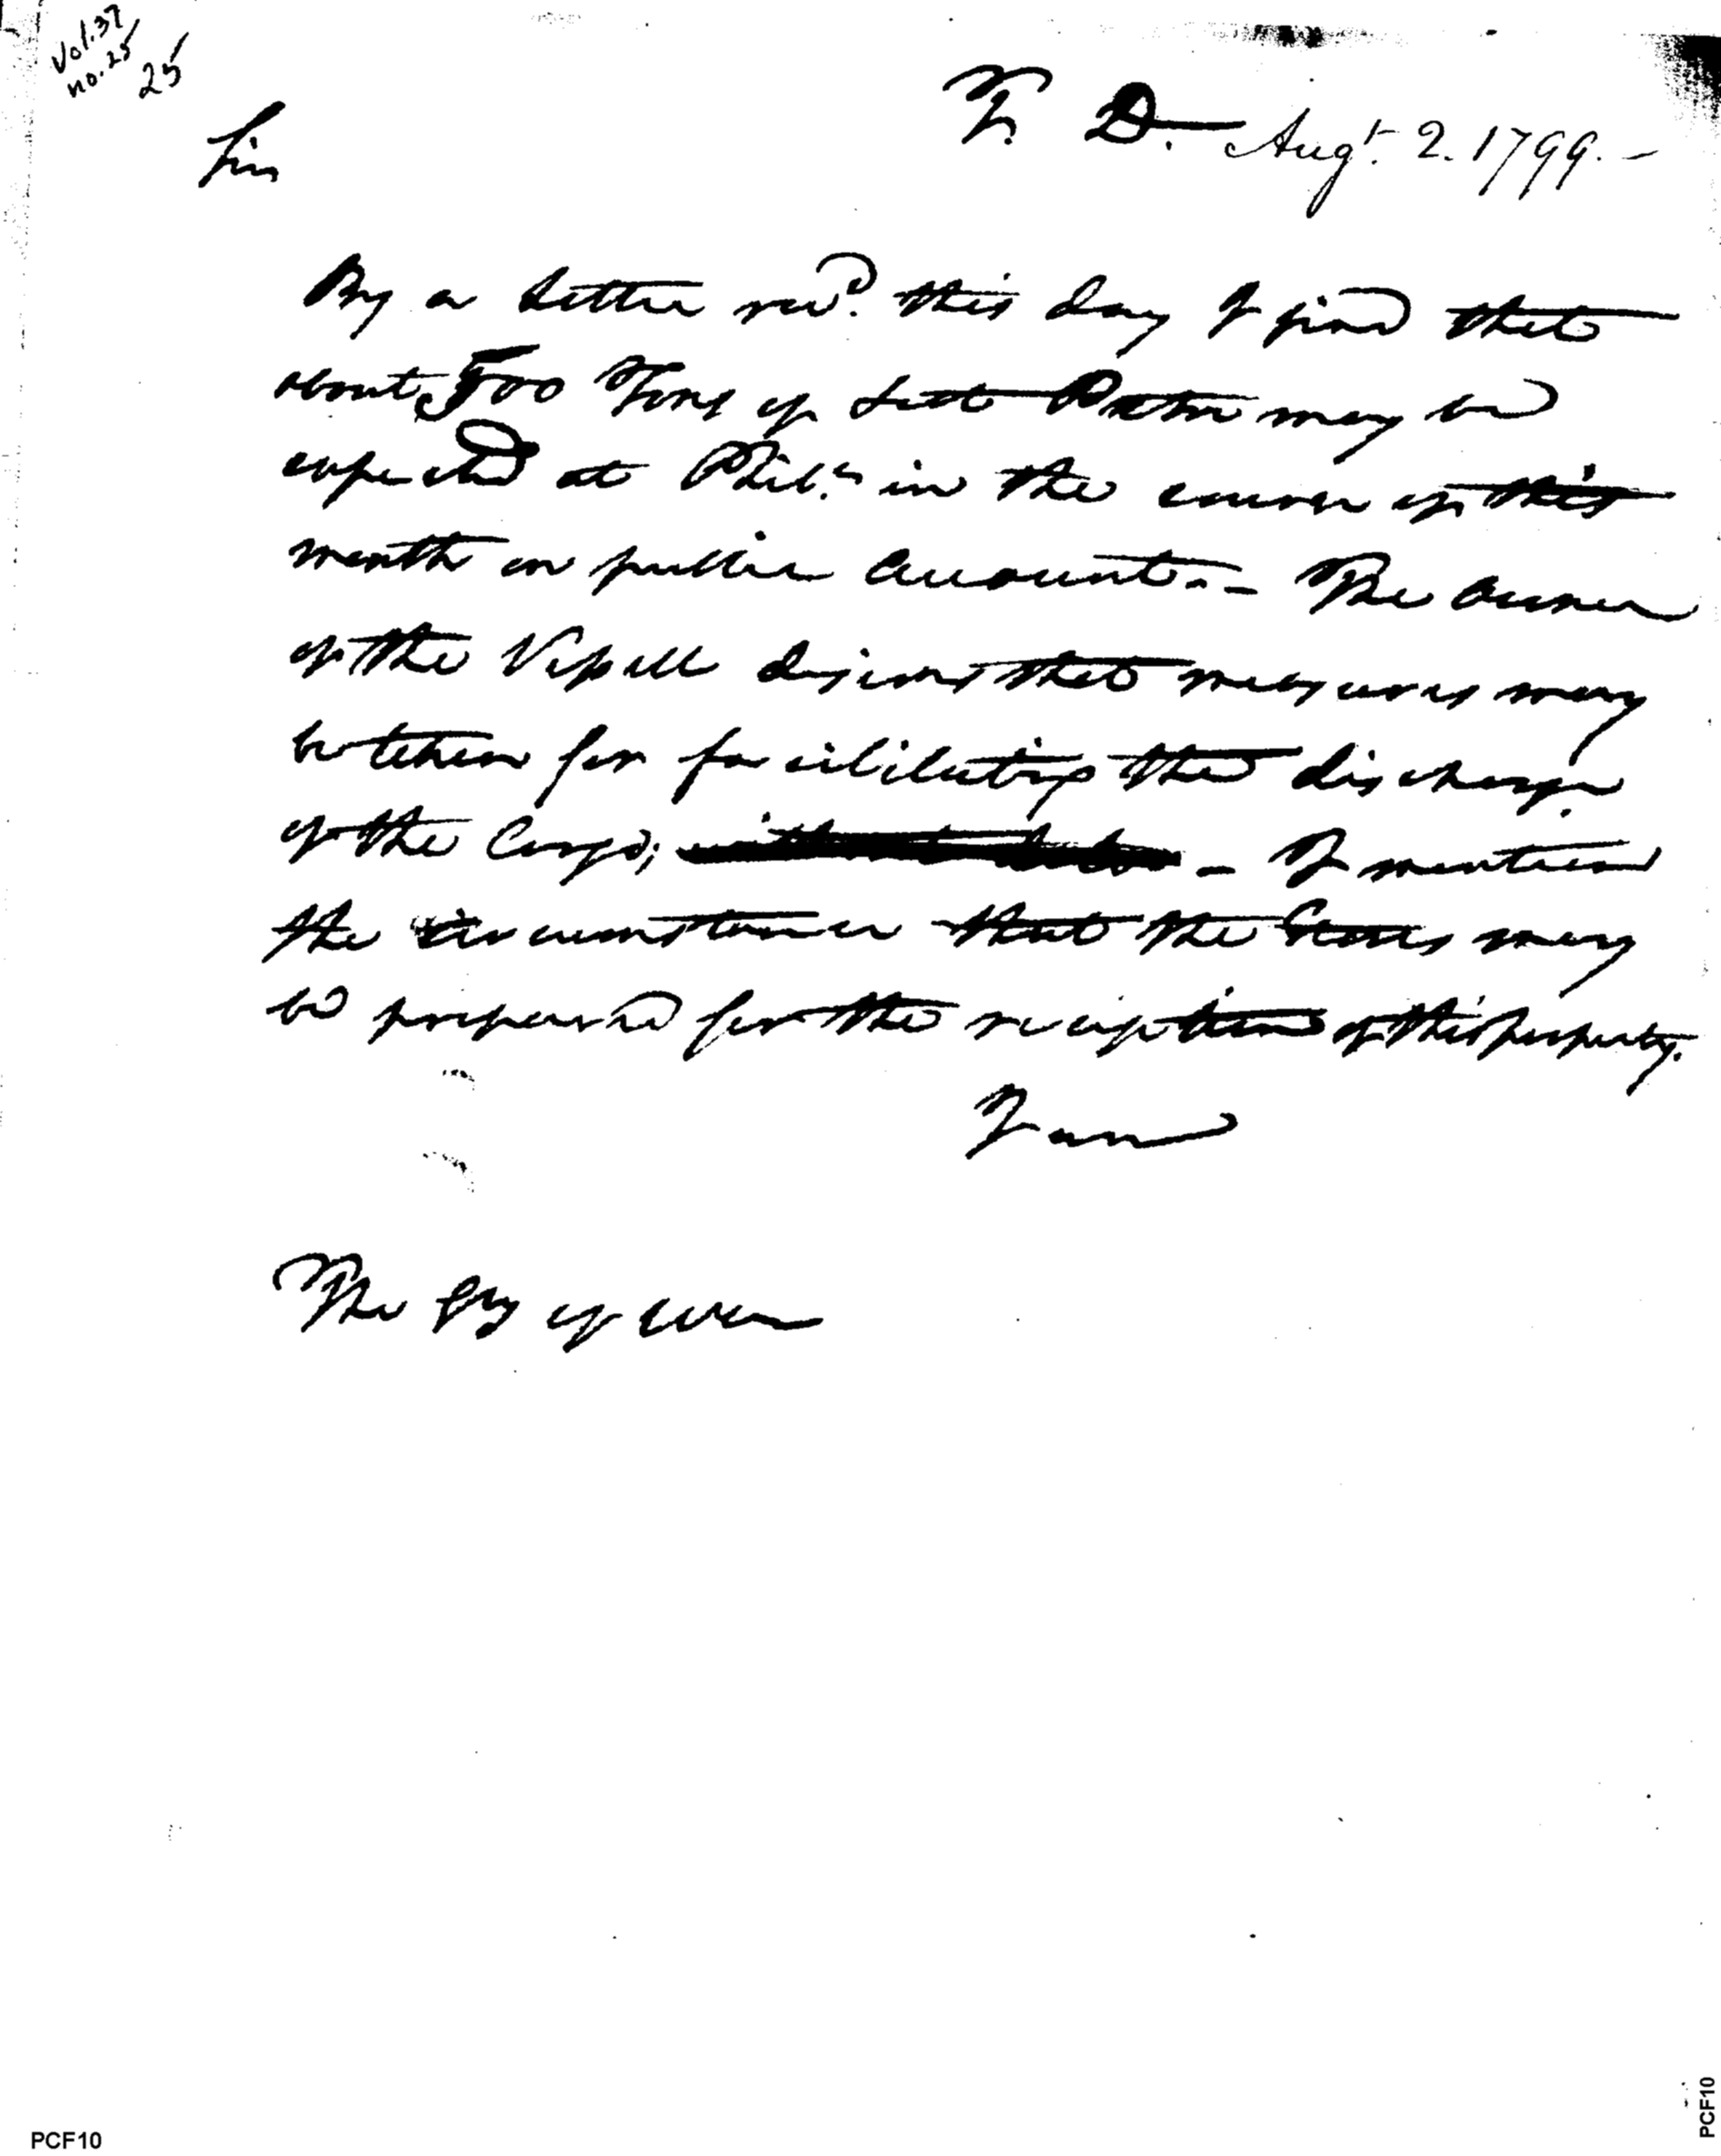 Vol. 37
no. 25
25
T. D. Augt. 2. 1799. -
Sir
By a letter recd. this day I find that
about 500 Tons of Salt Petre may be
expected at Phila. in the course of this
month on public account. - The owner
of the Vessell desires that measures may
be taken for facilitating the discharge
of the Cargo; - I mention
the circumstance that the Stores may
be prepared for the reception of this property.
I am
The Sy of War
PCF10
PCF10